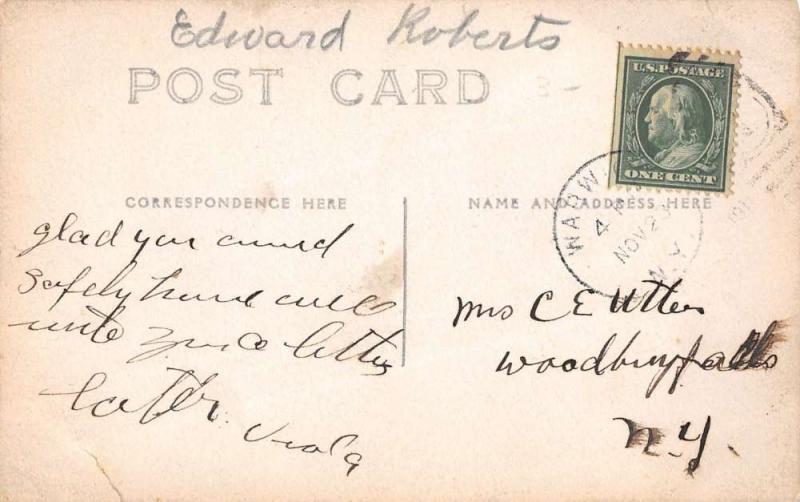 Edward Roberts
POST CARD
3-
U.S. POSTAGE
ONE CENT
CORRESPONDENCE HERE
NAME AND ADDRESS HERE
WADW
4 P
NOV 23
N.Y.
glad you arrived
safely home will
write you a letter
later. Viola
Mrs C E Utter
Woodbury falls
N.Y.